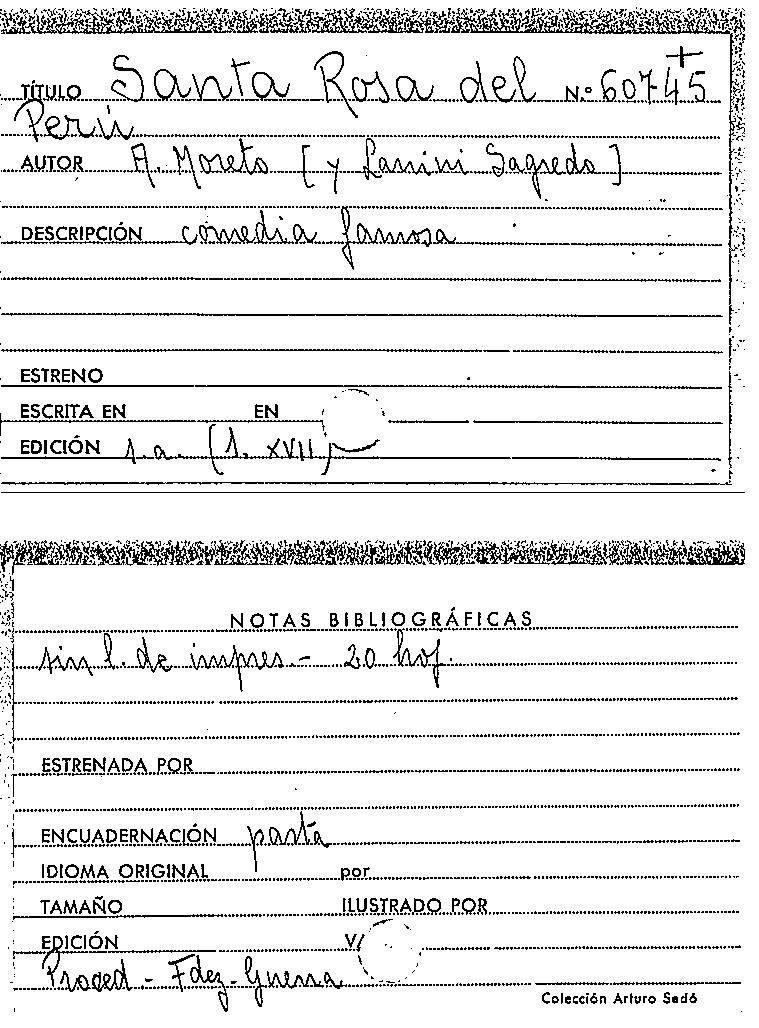 TÍTULO Santa Rosa del N.º 60745
Perú
AUTOR A. Moreto [y Lanini Sagredo]
DESCRIPCIÓN comedia famosa
ESTRENO
ESCRITA EN EN
EDICIÓN s.a. (s. XVII)
NOTAS BIBLIOGRÁFICAS
sin l. de impres.- 20 hoj.
ESTRENADA POR
ENCUADERNACIÓN pasta
IDIOMA ORIGINAL por
TAMAÑO ILUSTRADO POR
EDICIÓN V/
Proced - Fdez-Guerra
Colección Arturo Sedó